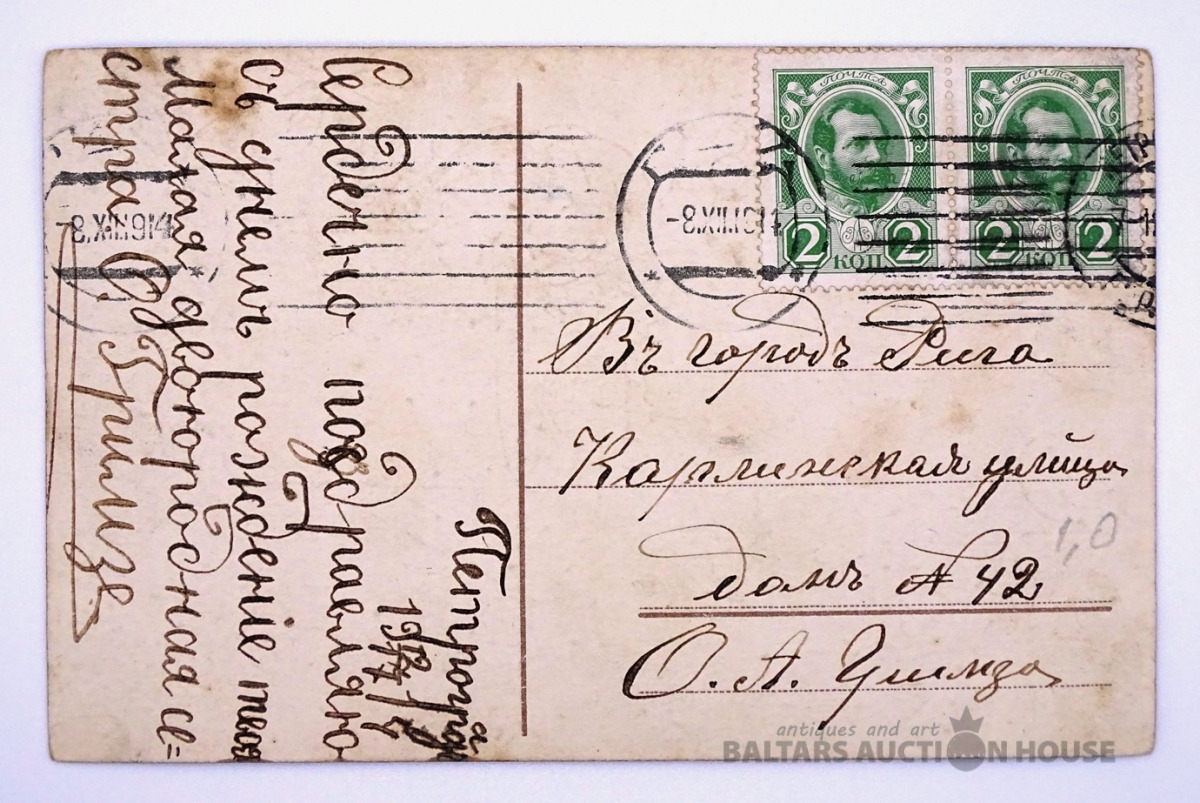 Петроградъ
19 7/XII 14
Сердечно поздравляю
съ днемъ рожденіе твоя
Малая двоюродная се=
стра О. Гримзе
ПОЧТА
ПОЧТА
2 КОП 2
2 КОП 2
-8.XII.1914
-8.XII.1914
Въ городъ Рига
Карлинская улица
домъ № 42
О. А. Гримза
1,0
antiques and art
BALTARS AUCTION HOUSE